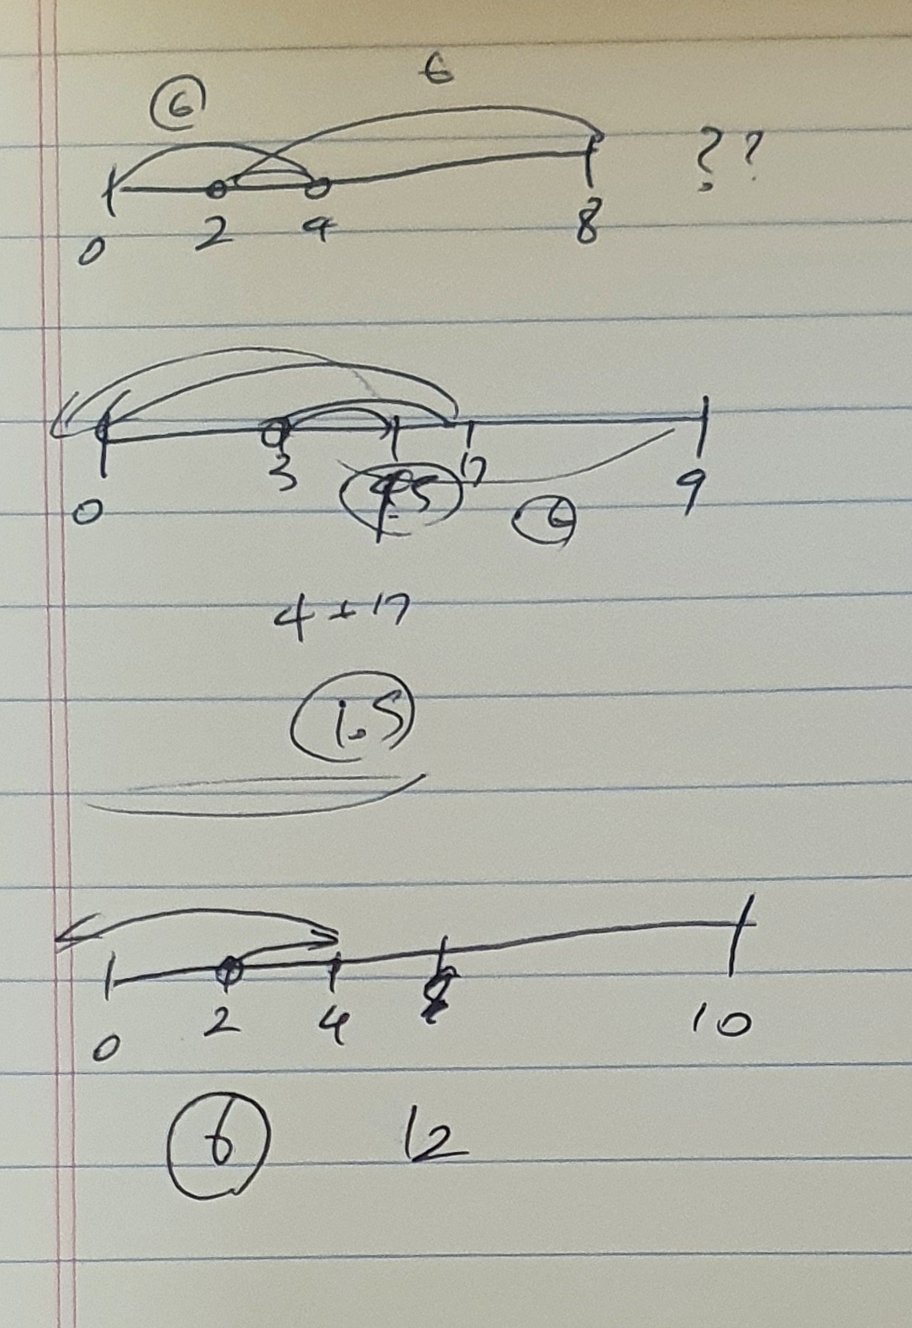 6
6
??
0 2 4 8
0 3 9
6
4 + 17
1.5
0 2 4 10
6 12